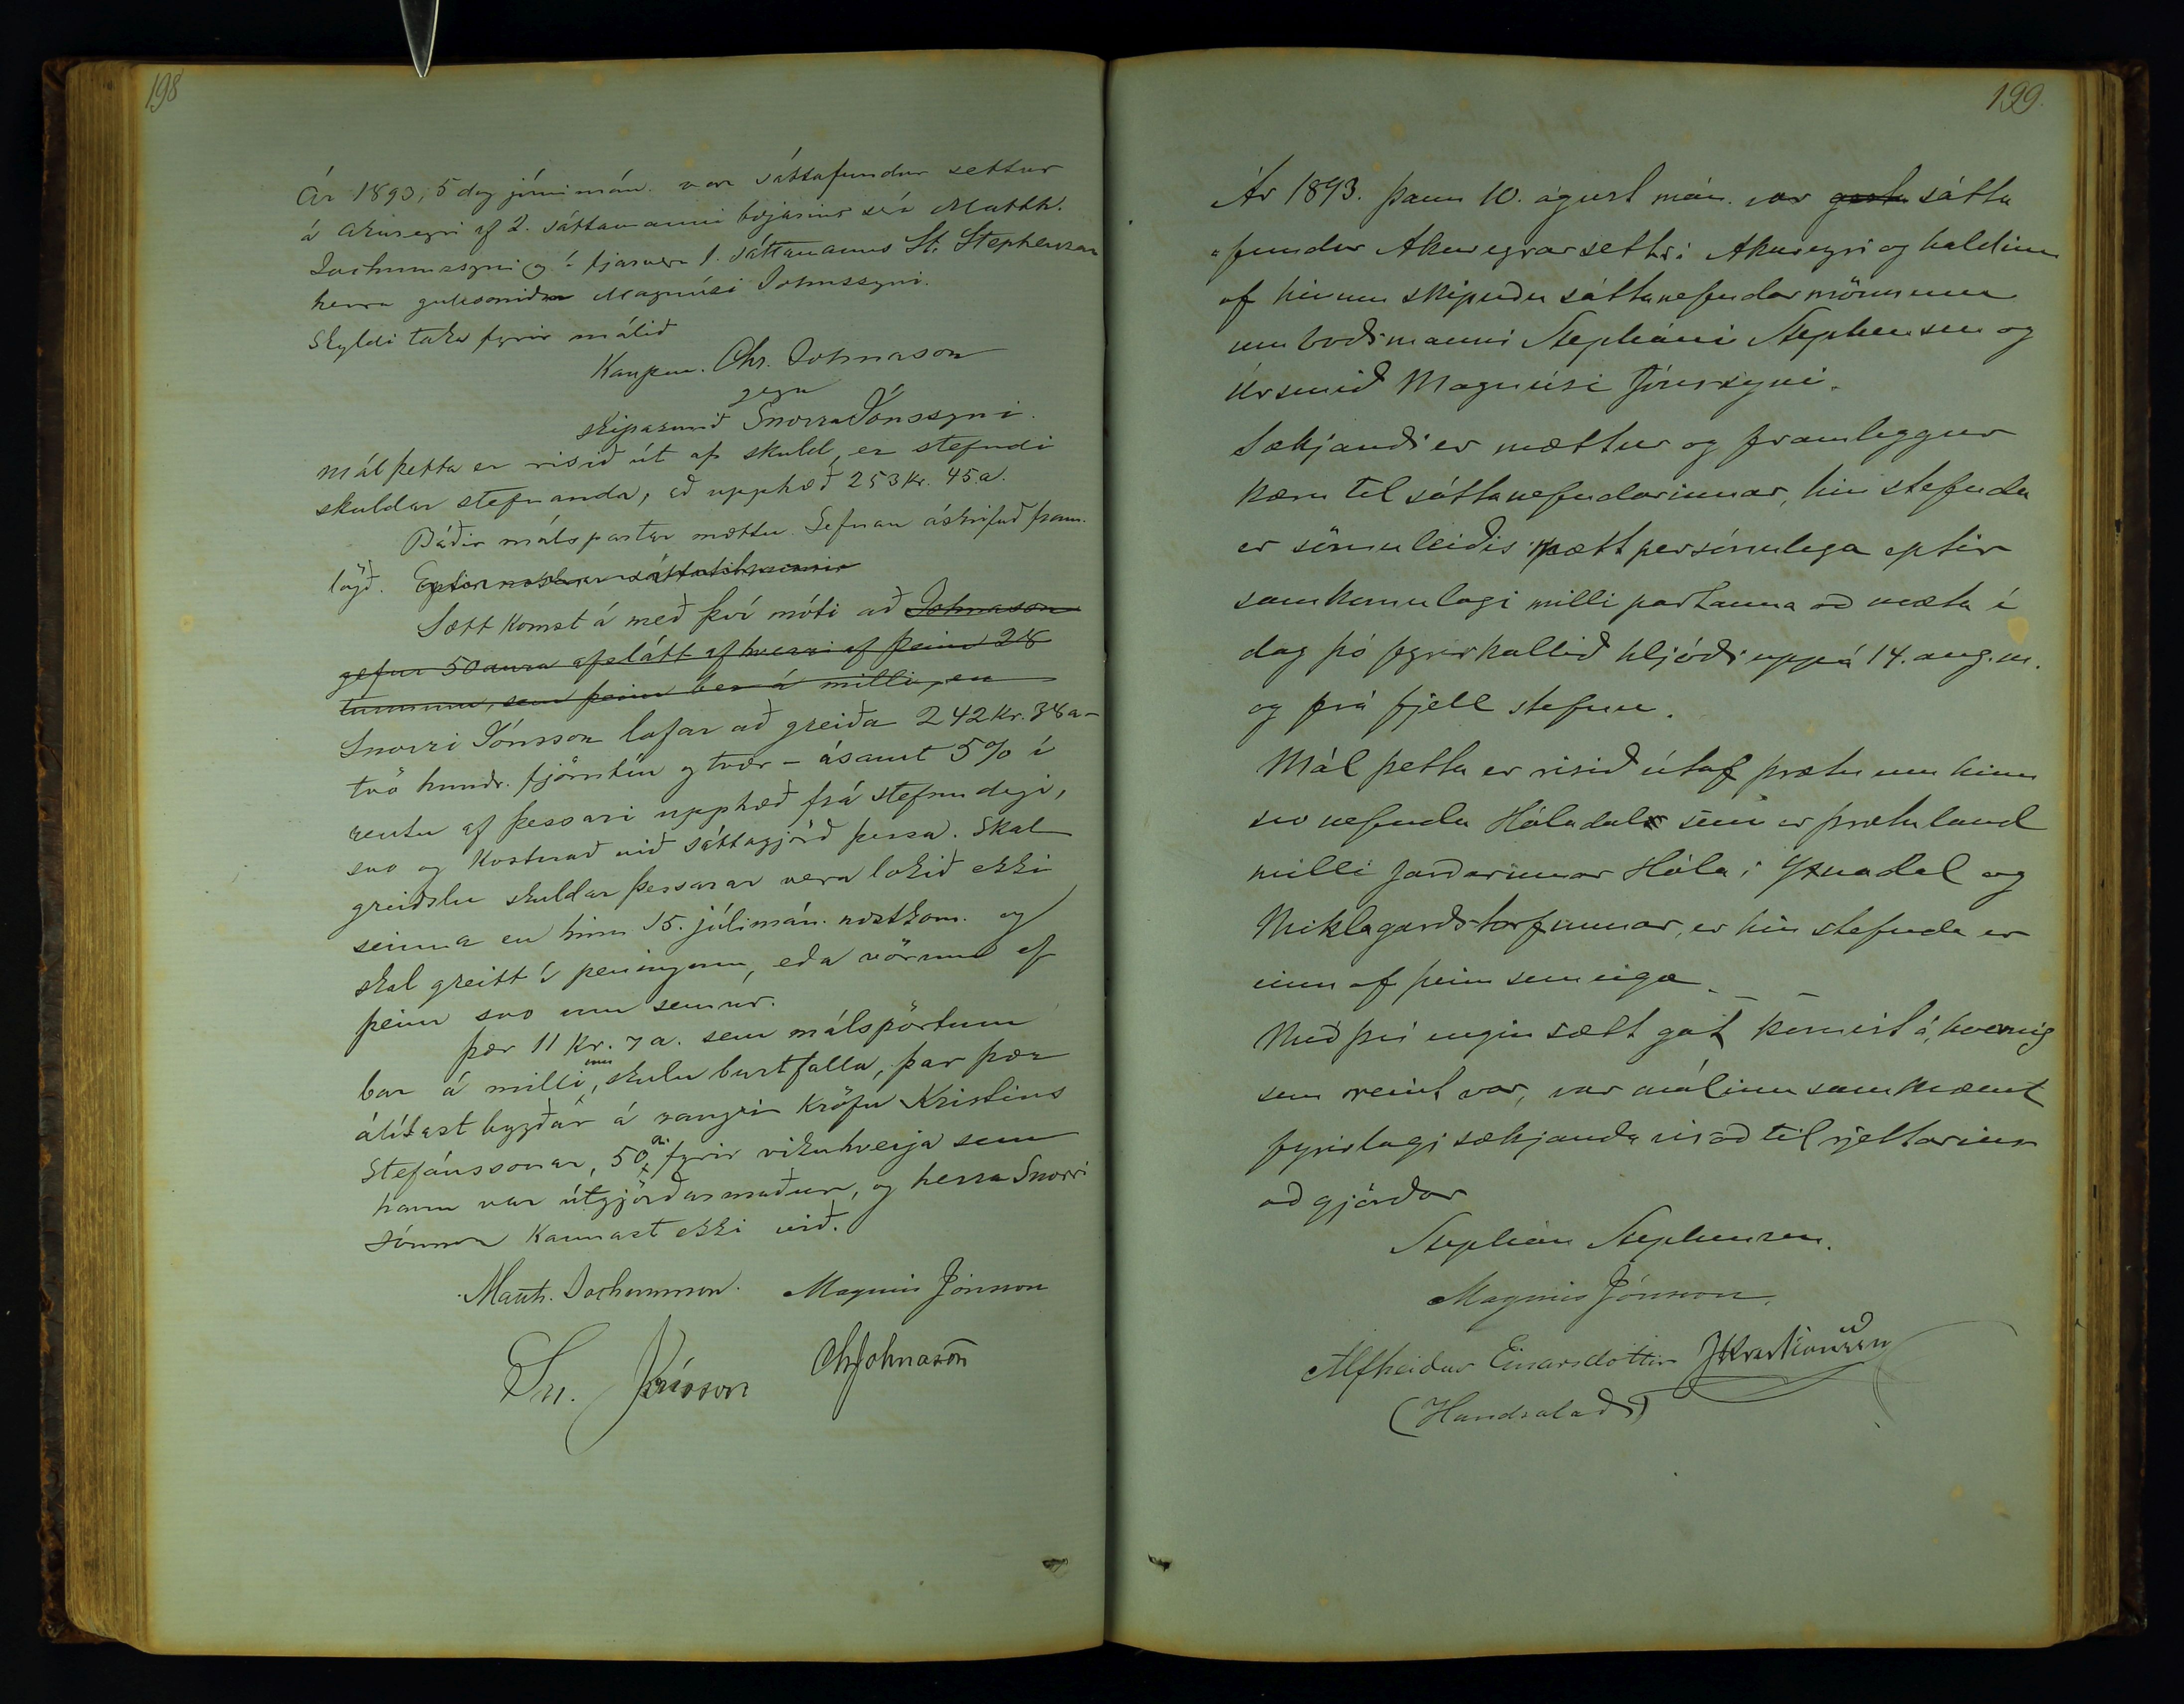 198
Ár 1893, 5 dag júnimán. var sáttafundur settur
á Akureyri af 2. sáttamanni bæjarins séra Matth.
Jochumssyni og í fjarveru 1. sáttamanns St. Stephensen
herra gullsmiðm Magnúsi Johnssyni.
Skyldi taka fyrir málið
Kaupm. Chr. Johnason
gegn
skipasmið Snorra Jónssyni.
Mál þetta er risið út af skuld, er stefndi
skuldar stefnanda, að upphæð 253 kr. 45 a.
Báðir málspartar mættu. Stefnan áskrifuð fram-
lögð. Eptir nokkrar sáttatilraunir
Sætt komst á með því móti að Johnason
gefur 50 aura afslátt af hverri af þeim 28
tunnum, sem þeim ber á milli, en
Snorri Jónsson lofar að greiða 242 kr. 38 a -
tvö hundr. fjörutíu og tvær - ásamt 5% í
rentu af þessari upphæð frá stefnudegi,
svo og kostnað við sáttagjörð þessa. Skal
greiðslu skuldar þessarar vera lokið ekki
seinna en hinn 15. júlímán. næstkom. og
skal greitt í peningum, eða vörum ef
þeim svo um semur.
Þær 11 kr. 7 a. sem málspörtum
bar á milli um, skulu burtfalla, þar þær
álítast bygðar á rangri kröfu Kristins
Stefánssonar, 50 a. fyrir viku hverja sem
hann var útgjörðarmaður, og herra Snorri
Jónsson kannast ekki við.
Matth. Jochumsson. Magnús Jónsson
Sn. Jónsson ChJohnason
199.
Ár 1893. þann 10. ágúst mán. var sátta
"fundur Akureyrar settr í Akureyri og haldinn
af hinum skipuðu sáttanefndarmönnum
umboðsmanni Stepháni Stephensen og
Úrsmið Magnúsi Jónssyni.
Sækjandi er mættur og framleggur
kæru til sáttanefndarinnar, hin stefnda
er sömuleiðis mætt persónulega eptir
samkomulagi milli partanna að mæta í
dag þó fyrirkallið hljóði uppá 14. aug. m.
og frá fjell stefnu.
Mál þetta er risið útaf þrætu um hinn
svo nefnda Hóladal sem er þrætuland
milli jarðarinnar Hóla í Yxnadal og
Miklagarðstorfunnar, er hin stefnda er
einn af þeim sem eiga
Með því engin sætt gat komist á, hvernig
sem reint var, var málinu samkvæmt
fyrirlagi sækjanda vísað til rjettarins
aðgjörðar
Stephán Stephensen.
Magnús Jónsson.
Alfheiður Einarsdóttir JKristiánsson
(Handsalað)